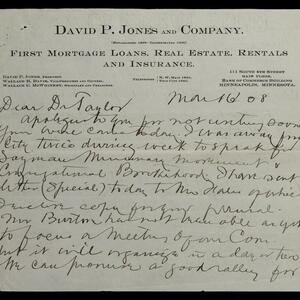 DAVID P. JONES AND COMPANY.
FIRST MORTGAGE LOANS, REAL ESTATE, RENTALS
AND INSURANCE.
DAVID P. JONES, PRESIDENT.
WALLACE H. DAVIS, VICE-PRESIDENT AND COUNSEL.
WALLACE C. MCWHINNEY, SECRETARY AND TREASURER.
TELEPHONES
111 SOUTH 5TH STREET
MAIN FLOOR
BANK OF COMMERCE BUILDING
MINNEAPOLIS, MINNESOTA.
Mar 16 08
Dear Dr Taylor
Apologize to you for not writing sooner
Your wire came today. I was away from
City twice during week to speak for
Layman Missionary Movement &
Congregational Brotherhood. I have sent
letter (Special) today to Mrs
copy for your perusal.
Mr Burton has not been able as yet
to focus a Meeting of our Com.
but it will organize in a day or two
We can promise a good rally for